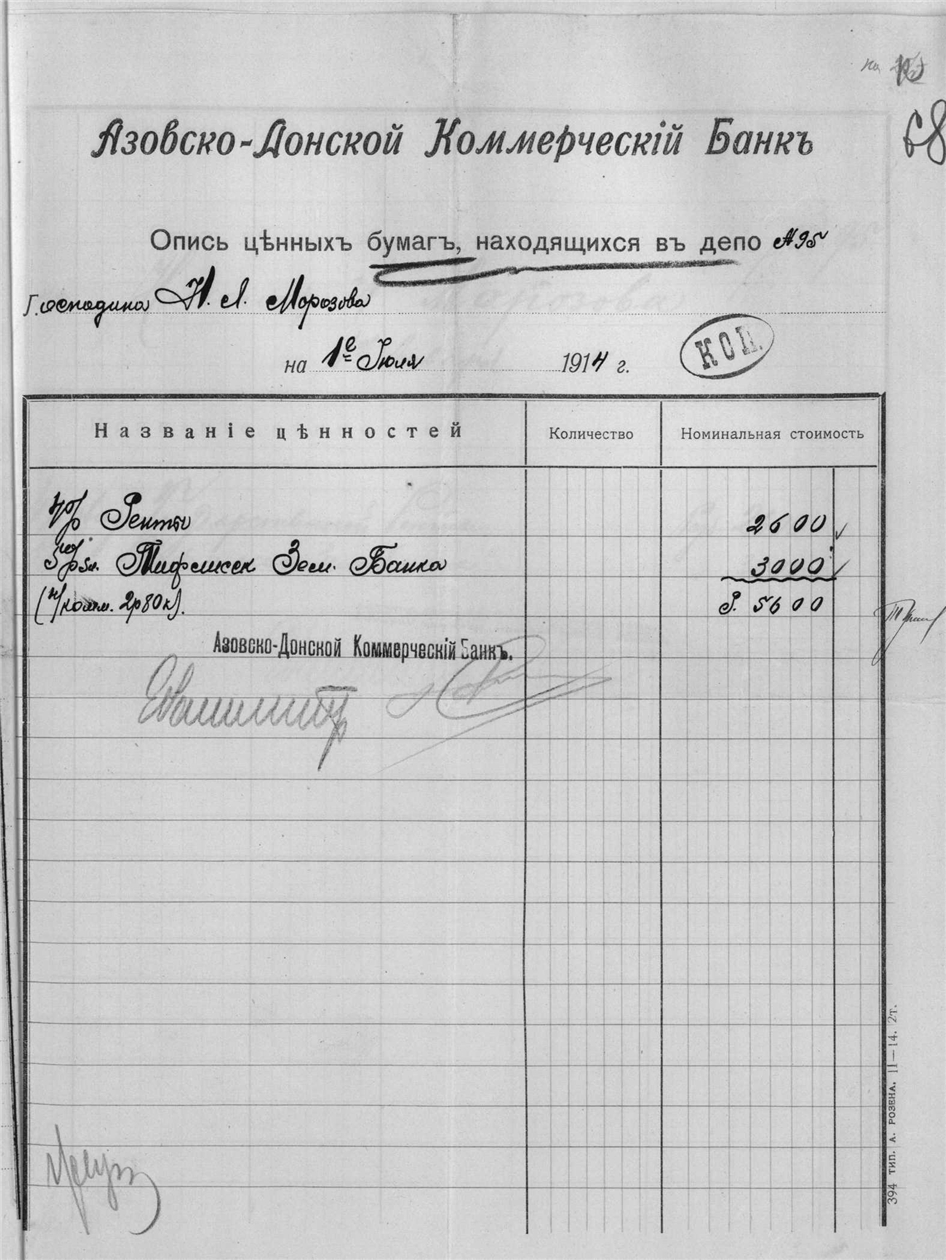 68
Азовско-Донской Коммерческій Банкъ
Опись цѣнныхъ бумагъ, находящихся въ депо № 95
Господина Н. А. Морозова
на 1е Іюля 1914 г.
КОП.
Названіе цѣнностей Количество Номинальная стоимость
4% Ренты 2600
Тифлисск Зем. Банка 3000
(н/комм. 2р80к). Р. 5600
Азовско-Донской Коммерческій Банкъ.
394 тип. А. Розена. 11—14. 2т.